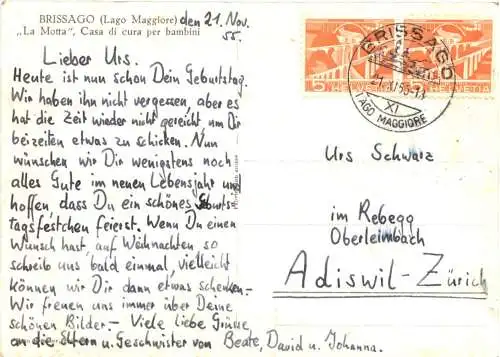 BRISSAGO (Lago Maggiore) den 21. Nov.
"La Motta", Casa di cura per bambini 55.
Lieber Urs.
Heute ist nun schon Dein Geburtstag.
Wir haben ihn nicht vergessen, aber es
hat die Zeit wieder nicht gereicht um Dir
beizeiten etwas zu schicken. Nun
wünschen wir Dir wenigstens noch
alles Gute im neuen Lebensjahr und
hoffen, dass Du ein schönes Geburts-
tagsfestchen feierst. Wenn Du einen
Wunsch hast, auf Weihnachten so
schreib uns bald einmal, vielleicht
können wir Dir dann etwas schenken.–
Wir freuen uns immer über Deine
schönen Bilder.– Viele liebe Grüsse
an die Eltern u. Geschwister von Beate, David u. Johanna.
5 HELVETIA
HELVETIA
BRISSAGO
21.XI.55-18
XI
LAGO MAGGIORE
Urs Schwarz
im Rebegg
Oberleimbach
Adiswil-Zürich